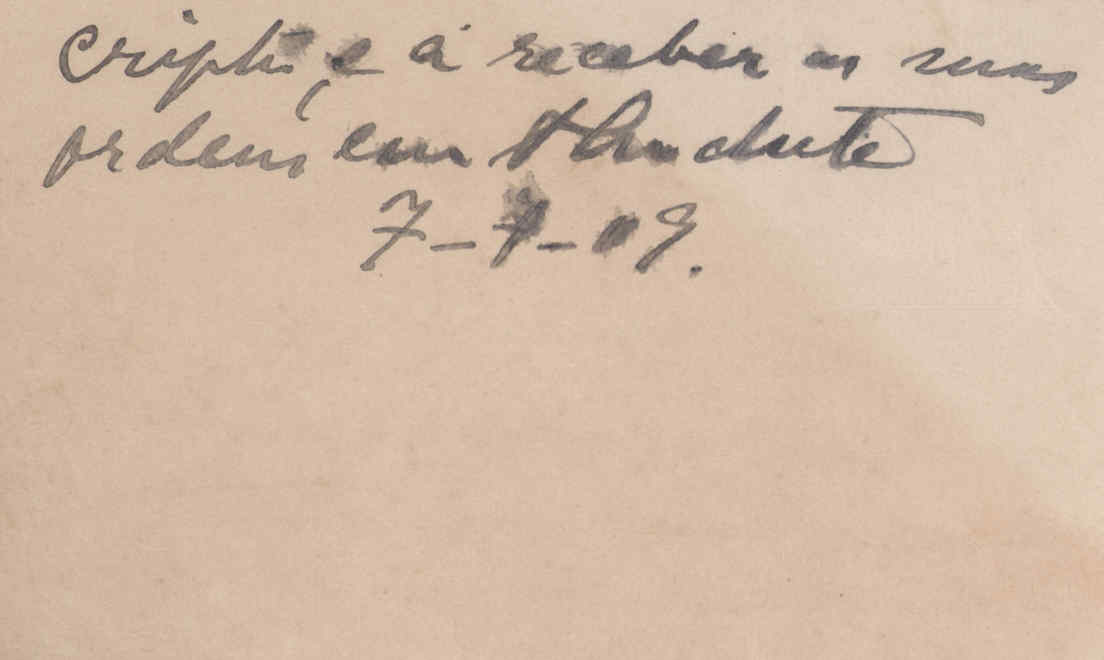 cripto, e á receber as suas
ordens em
7-7-09.